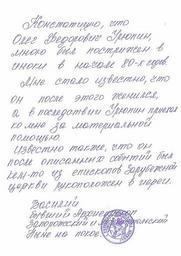 Констатирую, что
Олег Федорович Урюпин,
мною был пострижен в
иноки в начале 80-х годов.
Мне стало известно, что
он после этого женился,
а в последствии Урюпин приехал
ко мне за материальной
помощью.
Известно также, что он
после описанных событий был
кем-то из епископов Зарубежной
церкви рукоположен в иереи.
Василий
бывший Архиепископ
Запорожский и
Ныне на покое.